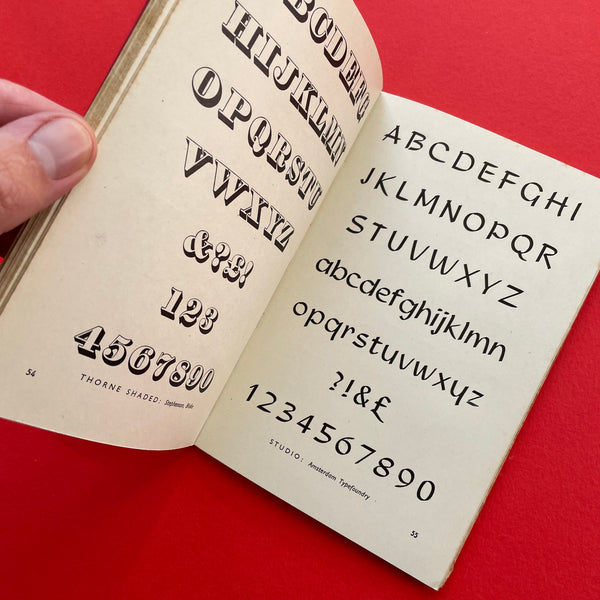 ABCDEFG
HIJKLMN
OPQRSTU
VWXYZ
&?£!
123
4567890
54 THORNE SHADED: Stephenson, Blake
ABCDEFGHI
JKLMNOPQR
STUVWXYZ
abcdefghijklmn
opqrstuvwxyz
?!&£
1234567890
STUDIO: Amsterdam Typefoundry
55